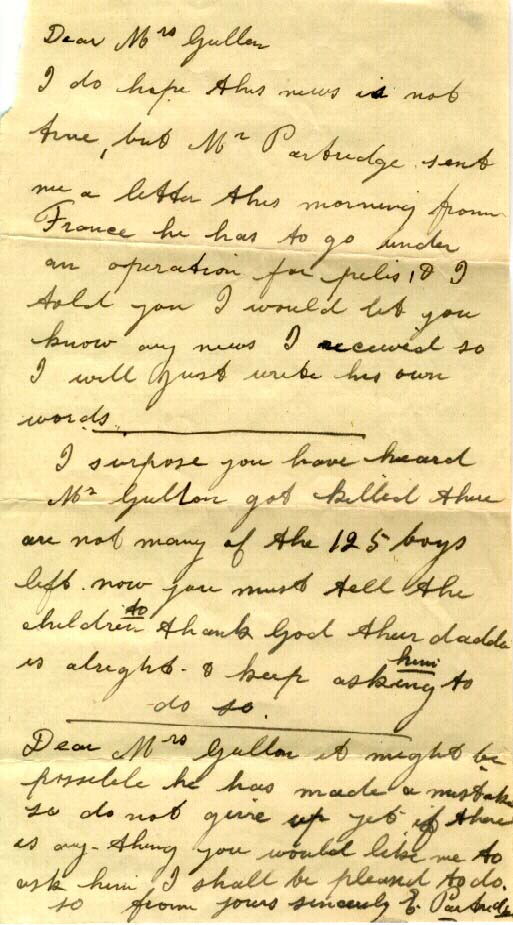 Dear Mrs Gullon
I do hope this news is not
true, but Mr Partridge sent
me a letter this morning from
France he has to go under
an operation for pelis, & I
told you I would let you
know any news I received so
I will just write his own
words.
I surpose you have heard
Mr Gullon got killed there
are not many of the 125 boys
left. now you must tell the
children to thank God their dadda
is alright. & keep asking him to
do so.
Dear Mrs Gullon it might be
possible he has made a mistake
so do not give up yet if there
is any-thing you would like me to
ask him I shall be pleased to do.
so from yours sincerely E Partridge